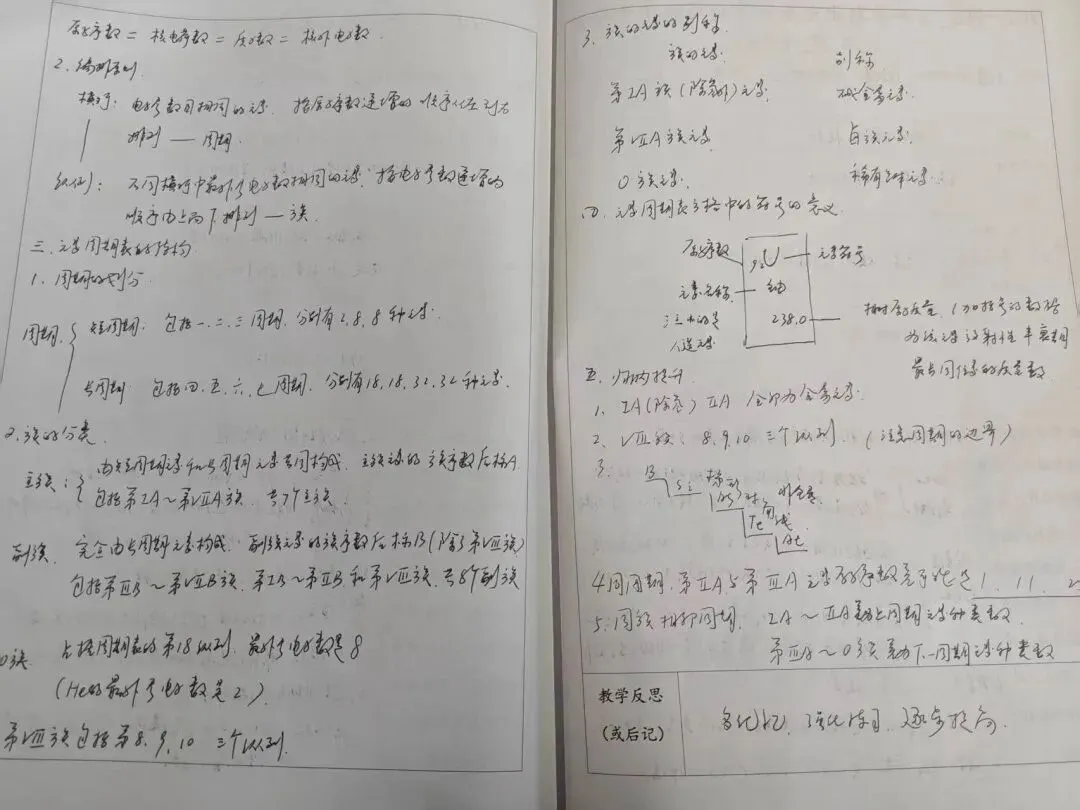 原子序数 = 核电荷数 = 质子数 = 核外电子数
2. 编排原则
横行: 电子层数目相同的元素 按原子序数递增的顺序从左到右
排列 — 周期
纵列: 不同横行中最外层电子数相同的元素 按电子层数递增的
顺序由上而下排列 — 族
三、元素周期表的结构
1. 周期的划分
周期
短周期: 包括一、二、三周期. 分别有2、8、8种元素
长周期: 包括四、五、六、七周期. 分别有18、18、32、32种元素
2. 族的分类
主族: 由短周期元素和长周期元素共同构成. 主族元素的族序数后标A
包括第IA~第VIIA族. 共7个主族
副族 完全由长周期元素构成. 副族元素的族序数后标B(除了第VIII族)
包括第IIIB~第VIIB族、第IB~第IIB和第VIII族. 共8个副族
0族 占据周期表的第18纵列. 最外层电子数是8
(He的最外层电子数是2)
第VIII族包括第8、9、10 三个纵列
3. 族的元素的别称
族的元素 别称
第IA族(除氢外)元素 碱金属元素
第VIIA族元素 卤族元素
0族元素 稀有气体元素
四、元素周期表方格中的符号的意义
原子序数 92U 元素符号
元素名称 铀
注*的是
人造元素
238.0
相对原子质量 (加括号的数据
为该元素放射性半衰期
最长同位素的质量数
五. 归纳提升
1. IA(除氢) IIA 全部为金属元素
2. VIII族: 8、9、10 三个纵列 (注意周期的边界)
3. B
Si 梯形
As 对 非金属
Te 角
线
At
4 同周期. 第IIA与第IIIA元素原子序数差可能是 1 11
5. 同族相邻周期 IA~IIA 差为上周期元素种类数
第IIIA~0族 差为下一周期元素种类数
教学反思
(或后记)
多化记、强化练习、逐步提高